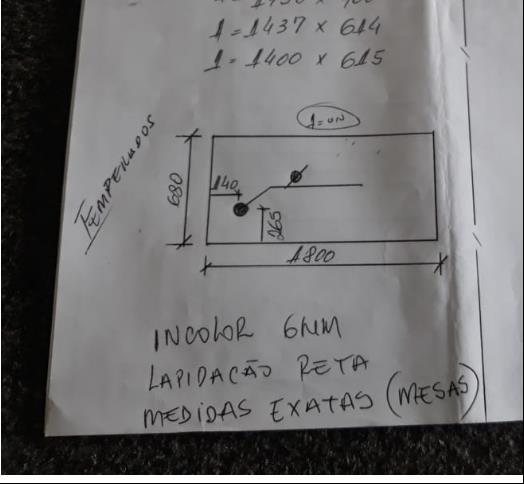 1=1437 x 614
1=1400 x 615
1=UN
TEMPERADOS
680
140
265
1800
INCOLOR 6MM
LAPIDACÃO RETA
MEDIDAS EXATAS (MESAS)